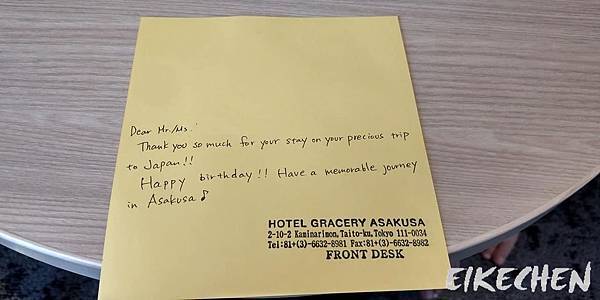 Dear Mr./Ms.
Thank you so much for your stay on your precious trip
to Japan!!
Happy birthday!! Have a memorable journey
in Asakusa♪
HOTEL GRACERY ASAKUSA
2-10-2 Kaminarimon,Taito-ku,Tokyo 111-0034
Tel:81+(3)-6632-8981 Fax:81+(3)-6632-8982
FRONT DESK
EIKECHEN